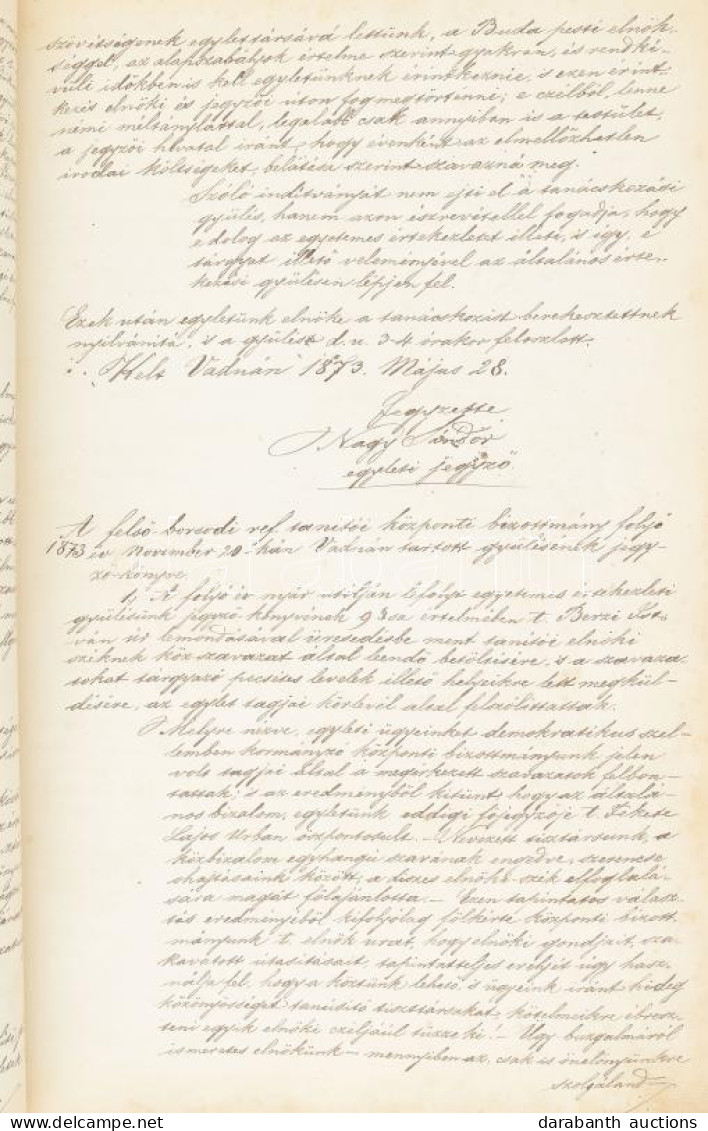 szövetségenek egylettársává lettünk, a Buda pesti elnök-
séggel, az alapszabályok értelme szerint gyakran, és rendkí-
vüli időkben is kell egyletünknek érintkeznie, s ezen érint-
kezés elnöki és jegyzői úton fog megtörténni; e czélból lenne
némi méltánylattal, legalább csak annyiban is a testület,
a jegyzői hivatal iránt, hogy évenként az elmellőzhetlen
irodai költségeket, belátása szerint szavazná meg.
Szóló inditványát nem ejti el a tanácskozási
gyülés, hanem azon észrevétellel fogadja, hogy
e dolog az egyetemes értekezletet illeti, is igy, e
tárgyat illető véleményével az általános érte-
kezési gyülésen lépjen fel.
Ezek után egyletünk elnöke a tanácskozást berekesztettnek
nyilvánitá, s a gyülés d. u. 3-4 órakor feloszlott.
Kelt Vadnán 1873. Május 28.
Jegyzette
Nagy Sándor
egyleti jegyző.
A felső-borsodi ref. tanitói központi bizottmány folyó
1873 év November 20-kán Vadnán tartott gyülésének jegy-
ző-könyve.
1, A folyó év nyár utólján lefolyt egyetemes értekezleti
gyülésünk jegyző-könyvének 9 §-sa értelmében t. Berzi Ist-
ván úr lemondásával üresedésbe ment tanitói elnöki
széknek köz szavazat által leendő betöltésére, s a szavaza-
tokat tárgyazó pecsétes levelek illető helyeikre lett megkül-
désére, az egylet tagjai körlevél által felszólittattak.
Melyre nézve, egyleti ügyeinket demokratikus szel-
lemben kormányzó központi bizottmányunk jelen
volt tagjai által a megérkezett szavazatok felbon-
tattak; s az eredményből kitünt hogy az általá-
nos bizalom, egyletünk eddigi főjegyzője t. Fekete
Lajos Urban özpontosult. – Nevezett tisztársunk, a
közbizalom egyhangú szavának engedve, szerencse
ohajtásaink között, a díszes elnöki szék elfoglalá-
sára magát fölajánlotta. – Ezen tapintatos válasz-
tás eredményéből kifolyólag fölkérte központi bizott-
mányunk t. elnök urat, hogy elnöki gondjait, sza-
kavatott utasitásait, tapintatteljes erélyét úgy hasz-
nálja fel, hogy a köztünk lehető, s ügyeink iránt hideg
közönyösséget tanusitó tiszttársakat, kötelmeikre ébresz-
teni egyik elnöki czéljáúl tüzze ki! – Ugy buzgalmáról
ismeretes elnökünk – mennyiben az, csak is önelőnyünkre
szolgáland –
darabanth auctions